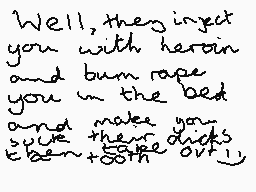 Well, they inject
you with heroin
and bum rape
you in the bed
and make you
suck their dicks
then take tooth out!!